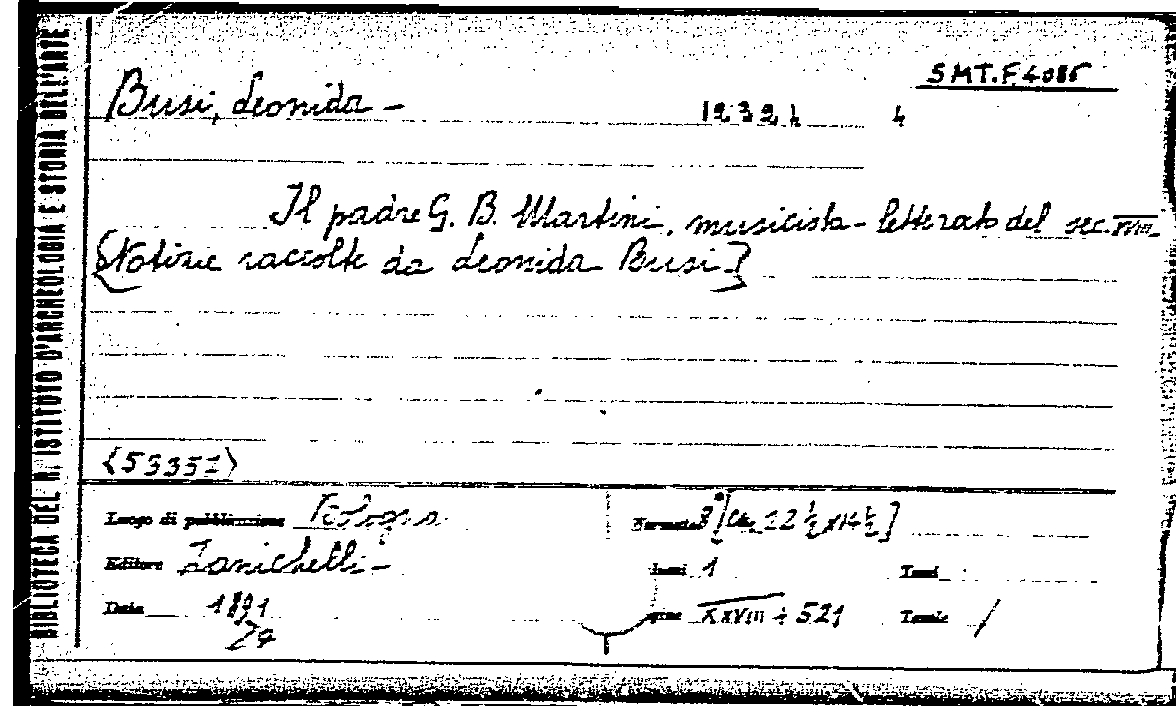 BIBLIOTECA DEL R. ISTITUTO D'ARCHEOLOGIA E STORIA DELL'ARTE
SMT.F.4085
Busi, Leonida -
12324 4
Il padre G. B. Martini, musicista-letterato del sec. XVIII.
[Notizie raccolte da Leonida Busi]
<53351>
Luogo di pubblicazione Bologna
Formato 8° [cm. 22 ½ x 14 ½]
Editore Zanichelli -
1
Tomi
Data 1891
XXVIII + 521
Tavole /